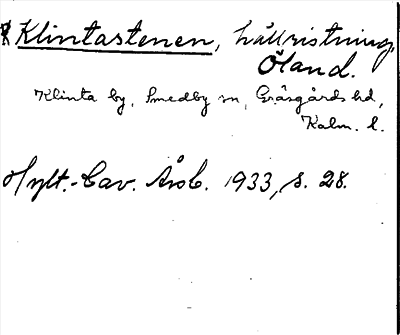 Klintastenen, hällristning,
Öland.
Klinta by, Smedby sn, Gräsgårds hd,
Kalm. l.
Hylt.-Cav. Årsb. 1933, s. 28.